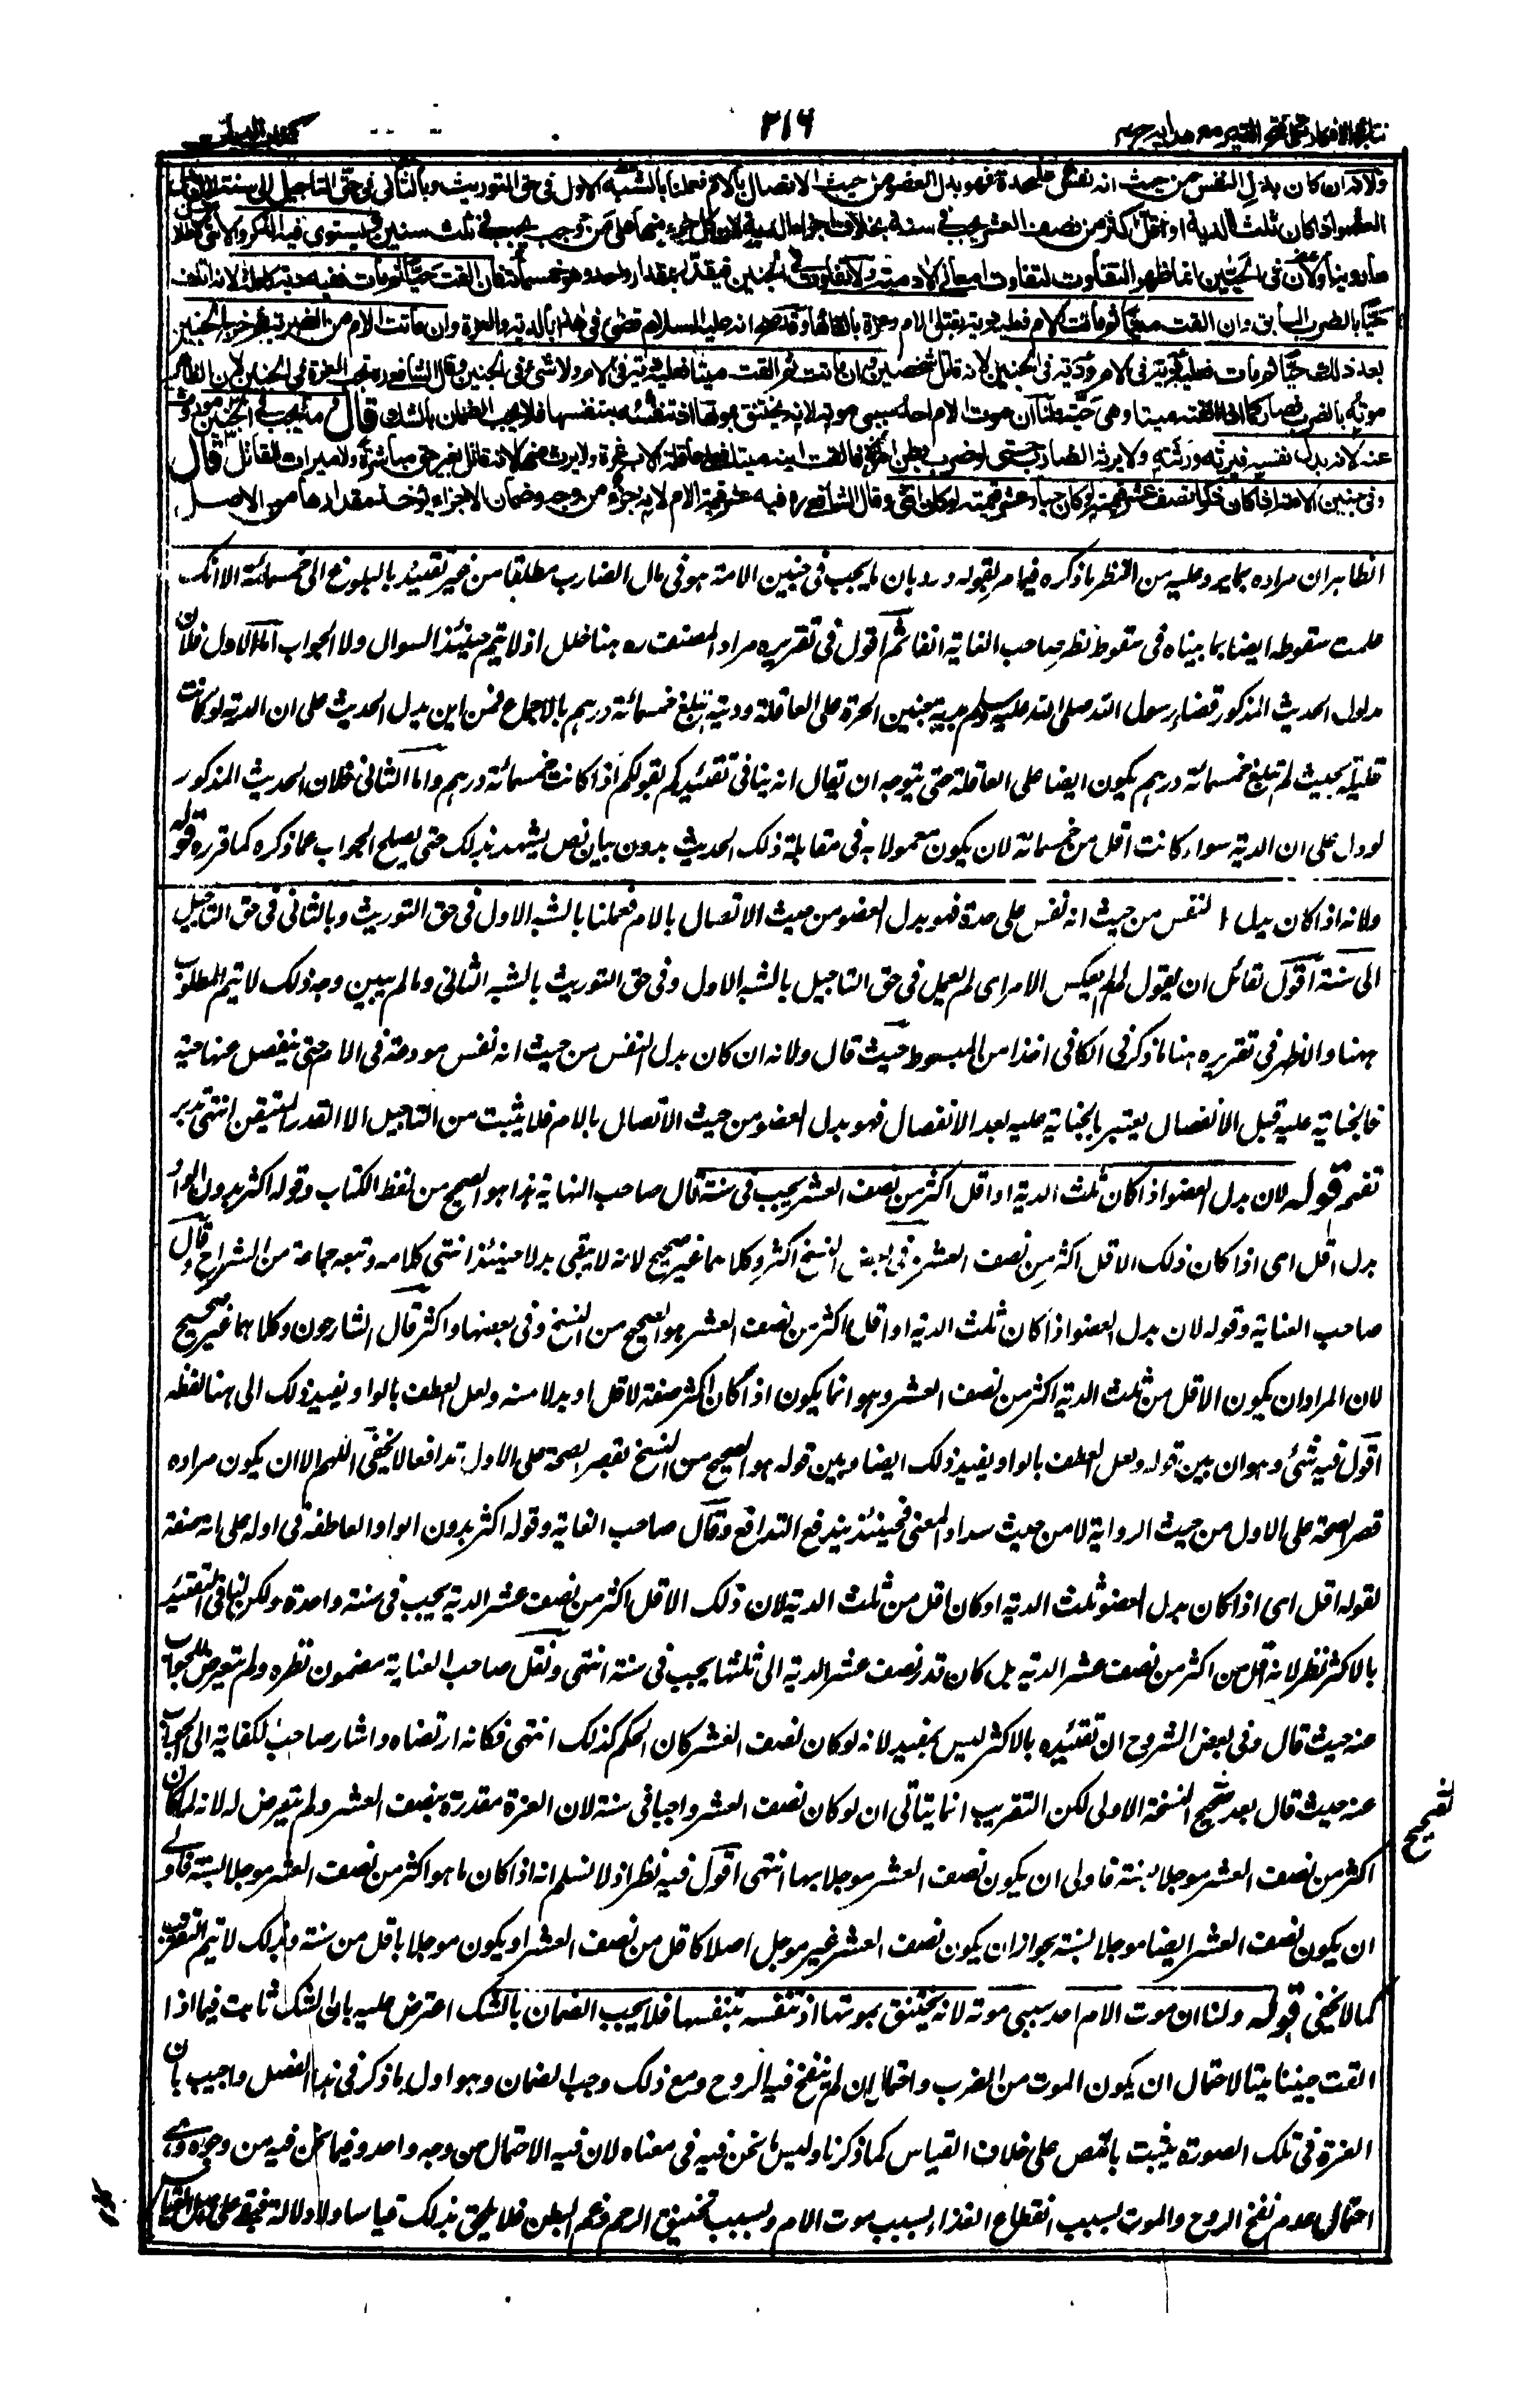 نتائج الافكار تكملة فتح القدير مع هدايه ج ٤
٣١٦
كتاب الديات
ولانه ان كان بدل النفس من حيث انه نفس على حدة فهو بدل العضو من حيث الاتصال بالام فعملنا بالشبه الاول فى حق التوريث وبالثانى فى حق التاجيل الى سنة لان بدل
العضو اذا كان ثلث الدية او اقل اكثر من نصف العشر يجب فى سنة بخلاف اجزاء الدية لان كل جزء منها على من وجب يجب فى ثلث سنين ويستوى فيه الذكر والانثى لاطلاق
ما روينا ولان فى الحيين انما ظهر التفاوت لتفاوت معانى الآدمية ولا تفاوت فى الجنين فيقدر بمقدار واحد وهو خمسمائة فان القت حيا ثم مات ففيه دية كاملة لانه اتلف
حيا بالضرب السابق وان القت ميتا ثم ماتت الام فعليه دية بقتل الام وغرة بالقائها وقد صح انه عليه السلام قضى فى هذا بالدية والغرة وان ماتت الام من الضربة ثم خرج الجنين
بعد ذلك حيا ثم مات فعليه دية فى الام ودية فى الجنين لانه قاتل شخصين وان ماتت ثم القت ميتا فعليه دية فى الام ولا شئ فى الجنين وقال الشافعى ره تجب الغرة فى الجنين لان الظاهر
موته بالضرب فصار كما اذا القته ميتا وهى حية ولنا ان موت الام احد سببى موته لانه يختنق بموتها اذ تنفسه بتنفسها فلا يجب الضمان بالشك قال وما يجب فى الجنين موروث
عنه لانه بدل نفسه فيرثه ورثته ولا يرثه الضارب حتى لو ضرب بطن امرأته فالقت ابنه ميتا فعلى عاقلة الاب غرة ولا يرث منها لانه قاتل بغير حق مباشرة ولا ميراث للقاتل قال
وفى جنين الامة اذا كان ذكرا نصف عشر قيمته لو كان حيا وعشر قيمته لو كان انثى وقال الشافعى ره فيه عشر قيمة الام لانه جزء من وجه وضمان الاجزاء يوخذ مقدارها من الاصل
الظاهر ان مراده بما يرد عليه من النظر ما ذكره فيما مر بقوله ورد بان ما يجب فى جنين الامة هو فى مال الضارب مطلقا من غير تقييد بالبلوغ الى خمسمائة الا انك
علمت سقوطه ايضا بما بيناه فى سقوط نظر صاحب الغاية آنفا ثم اقول فى تقريره مراد المصنف ره هنا خلل اذ لا يتم حينئذ السوال ولا الجواب اما الاول فلان
مدلول الحديث المذكور قضاء رسول الله صلى الله عليه وسلم بدية جنين الحرة على العاقلة ودية تبلغ خمسمائة درهم بالاجماع فمن اين يدل الحديث على ان الدية لو كانت
قليلة بحيث لم تبلغ خمسمائة درهم يكون ايضا على العاقلة حتى يتوجه ان يقال انه ينافى تقييدكم بقولكم اذا كانت خمسمائة درهم واما الثانى فلان الحديث المذكور
لو دل على ان الدية سواء كانت اقل من خمسمائة لان يكون معمولا به فى مقابلة ذلك الحديث بدون بيان نص يشهد بذلك حتى يصلح الجواب عما ذكره كما قرره قوله
ولانه اذا كان بدل النفس من حيث انه نفس على حدة فهو بدل العضو من حيث الاتصال بالام فعملنا بالشبه الاول فى حق التوريث وبالثانى فى حق التاجيل
الى سنة اقول لقائل ان يقول لم لم يعكس الامر اى لم يعمل فى حق التاجيل بالشبه الاول وفى حق التوريث بالشبه الثانى وما لم يبين وجه ذلك لا يتم المطلوب
ههنا والاظهر فى تقريره هنا ما ذكر فى الكافى اخذا من المبسوط حيث قال ولانه ان كان بدل النفس من حيث انه نفس مودعة فى الام حتى ينفصل عنها حية
فالجناية عليه قبل الانفصال يعتبر بالجناية عليه بعد الانفصال فهو بدل العضو من حيث الاتصال بالام فلا يثبت من التاجيل الا القدر المتيقن انتهى تدبر
تفهم قوله لان بدل العضو اذا كان ثلث الدية او اقل اكثر من نصف العشر يجب فى سنة قال صاحب النهاية هذا هو الصحيح من لفظ الكتاب وقوله اكثر بدون الواو
بدل اقل اى اذا كان ذلك الاقل اكثر من نصف العشر وفى بعض النسخ اكثر وكلاهما غير صحيح لانه لا يبقى بدلا حينئذ انتهى كلامه وتبعه جماعة من الشراح وقال
صاحب العناية وقوله لان بدل العضو اذا كان ثلث الدية او اقل اكثر من نصف العشر هو الصحيح من النسخ وفى بعضها واكثر قال الشارحون وكلاهما غير صحيح
لان المراد ان يكون الاقل من ثلث الدية اكثر من نصف العشر وهو انما يكون اذا كان اكثر صفة لاقل او بدلا منه ولعل العطف بالواو يفيد ذلك الى هنا لفظه
اقول فيه شئ وهو ان بين قوله ولعل العطف بالواو يفيد ذلك ايضا وبين قوله هو الصحيح من النسخ بقصر الصحة على الاول تدافعا لا يخفى اللهم الا ان يكون مراده
قصر الصحة على الاول من حيث الرواية لا من حيث سداد المعنى فحينئذ يندفع التدافع وقال صاحب الغاية وقوله اكثر بدون الواو العاطفة فى اوله على انه صفة
لقوله اقل اى اذا كان بدل العضو ثلث الدية او كان اقل من ثلث الدية لان ذلك الاقل اكثر من نصف عشر الدية يجب فى سنة واحدة ولكن لنا فى التقييد
بالاكثر نظر لانه اقل من اكثر من نصف عشر الدية بل كان قدر نصف عشر الدية الى ثلثها يجب فى سنة انتهى ونقل صاحب العناية مضمون نظره ولم يتعرض للجواب
عنه حيث قال وفى بعض الشروح ان تقييده بالاكثر ليس بمفيد لانه لو كان نصف العشر كان الحكم كذلك انتهى فكانه ارتضاه واشار صاحب الكفاية الى الجواب
عنه حيث قال بعد تصحيح النسخة الاولى لكن التقريب انما يتاتى ان لو كان نصف العشر واجبا فى سنة لان الغرة مقدرة بنصف العشر ولم يتعرض له لانه لما كان
اكثر من نصف العشر موجلا بسنة فاولى ان يكون نصف العشر موجلا بها انتهى اقول فيه نظر اذ لا نسلم انه اذا كان ما هو اكثر من نصف العشر موجلا بسنة فاولى
ان يكون نصف العشر ايضا موجلا بسنة بجواز ان يكون نصف العشر غير موجل اصلا كاقل من نصف العشر او يكون موجلا باقل من سنة وبذلك لا يتم التقريب
كما لا يخفى قوله ولنا ان موت الام احد سببى موته لانه يختنق بموتها اذ تنفسه بتنفسها فلا يجب الضمان بالشك اعترض عليه بان الشك ثابت فيما اذا
القت جنينا ميتا لاحتمال ان يكون الموت من الضرب واحتمال ان لم ينفخ فيه الروح ومع ذلك وجب الضمان وهو اول ما ذكر فى هذا الفصل واجيب بان
الغرة فى تلك الصورة يثبت بالنص على خلاف القياس كما ذكرنا وليس ما نحن فيه فى معناه لان فيه الاحتمال من وجه واحد وفيما نحن فيه من وجوه وهى
احتمال عدم نفخ الروح والموت بسبب انقطاع الغذاء بسبب موت الام وبسبب تخنيق الرحم وغم البطن فلا يلحق بذلك قياسا ولا دلالة فبقى على اصل القياس
تصحيح